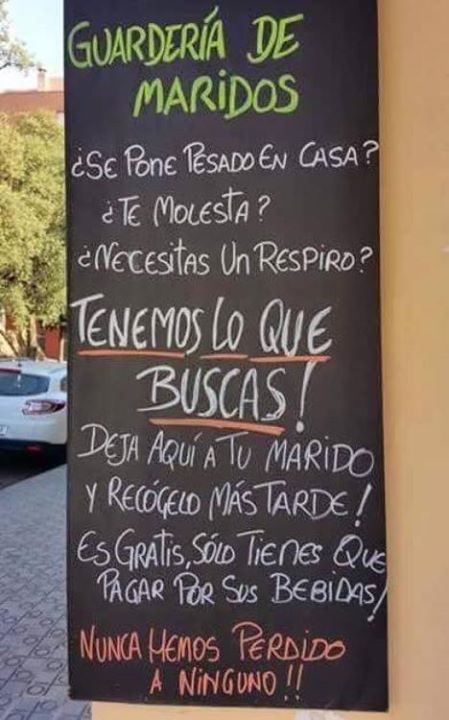 GUARDERÍA DE
MARiDOS
¿SE PONE PESADO EN CASA?
¿TE MOLESTA?
¿NECESITAS UN RESPIRO?
TENEMOS LO QUE
BUSCAS!
DEJA AQUÍ A TU MARIDO
Y RECÓGELO MÁS TARDE!
ES GRATIS, SÓLO TIENES QUE
PAGAR POR SUS BEBIDAS!
NUNCA HEMOS PERDIDO
A NINGUNO!!